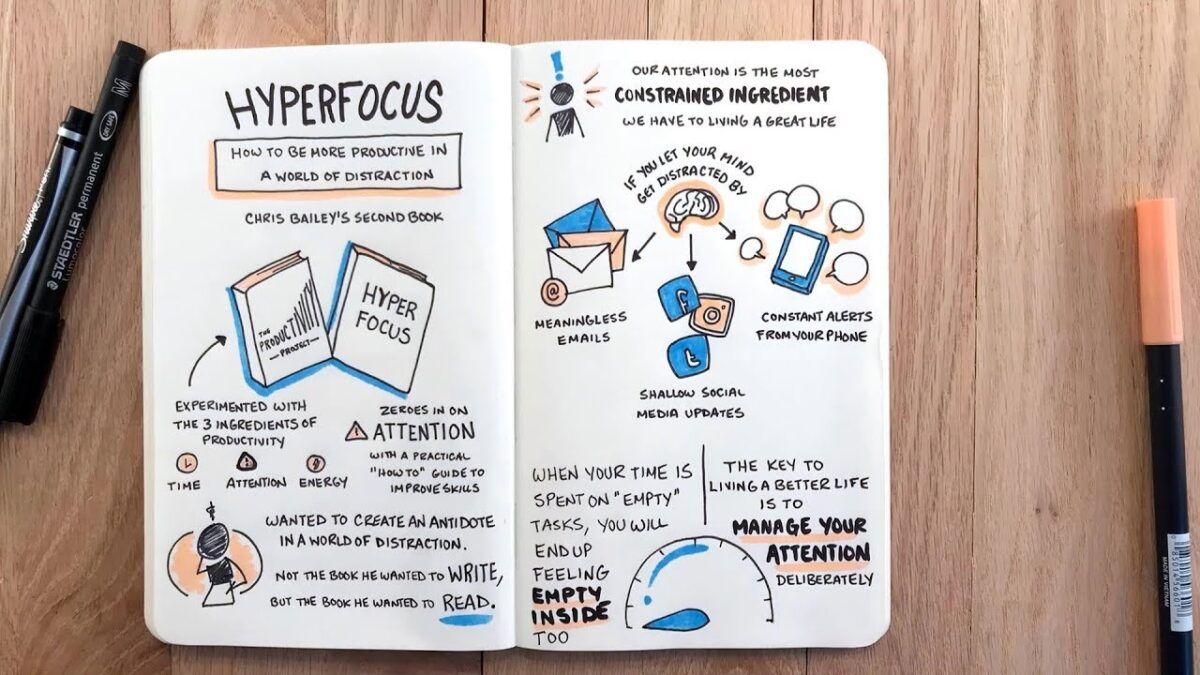 HYPERFOCUS
HOW TO BE MORE PRODUCTIVE IN
A WORLD OF DISTRACTION
CHRIS BAILEY'S SECOND BOOK
THE
PRODUCTIVITY
PROJECT
HYPER
FOCUS
EXPERIMENTED WITH
THE 3 INGREDIENTS OF
PRODUCTIVITY
TIME
ATTENTION
ENERGY
ZEROES IN ON
ATTENTION
WITH A PRACTICAL
"HOW TO" GUIDE TO
IMPROVE SKILLS
WANTED TO CREATE AN ANTIDOTE
IN A WORLD OF DISTRACTION.
NOT THE BOOK HE WANTED TO WRITE,
BUT THE BOOK HE WANTED TO READ.
OUR ATTENTION IS THE MOST
CONSTRAINED INGREDIENT
WE HAVE TO LIVING A GREAT LIFE
IF YOU LET YOUR MIND
GET DISTRACTED BY
@
MEANINGLESS
EMAILS
f
t
SHALLOW SOCIAL
MEDIA UPDATES
CONSTANT ALERTS
FROM YOUR PHONE
WHEN YOUR TIME IS
SPENT ON "EMPTY"
TASKS, YOU WILL
END UP
FEELING
EMPTY
INSIDE
TOO
THE KEY TO
LIVING A BETTER LIFE
IS TO
MANAGE YOUR
ATTENTION
DELIBERATELY
STAEDTLER permanent
Lumocolor
M
MADE IN VIETNAM